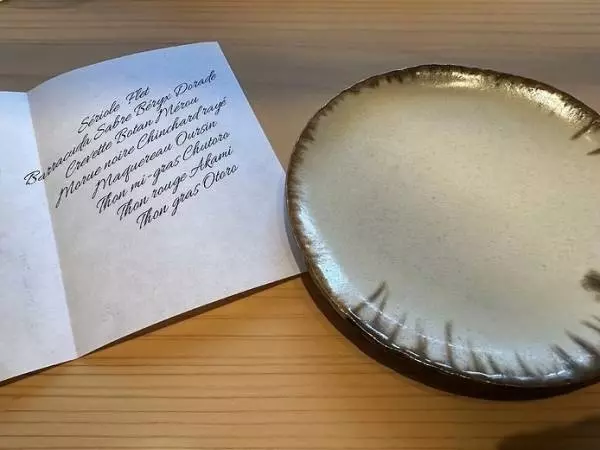 Sériole Flet
Barracuda Sabre Béryx Dorade
Crevette Botan Mérou
Morue noire Chinchard rayé
Maquereau Oursin
Thon mi-gras Chutoro
Thon rouge Akami
Thon gras Otoro